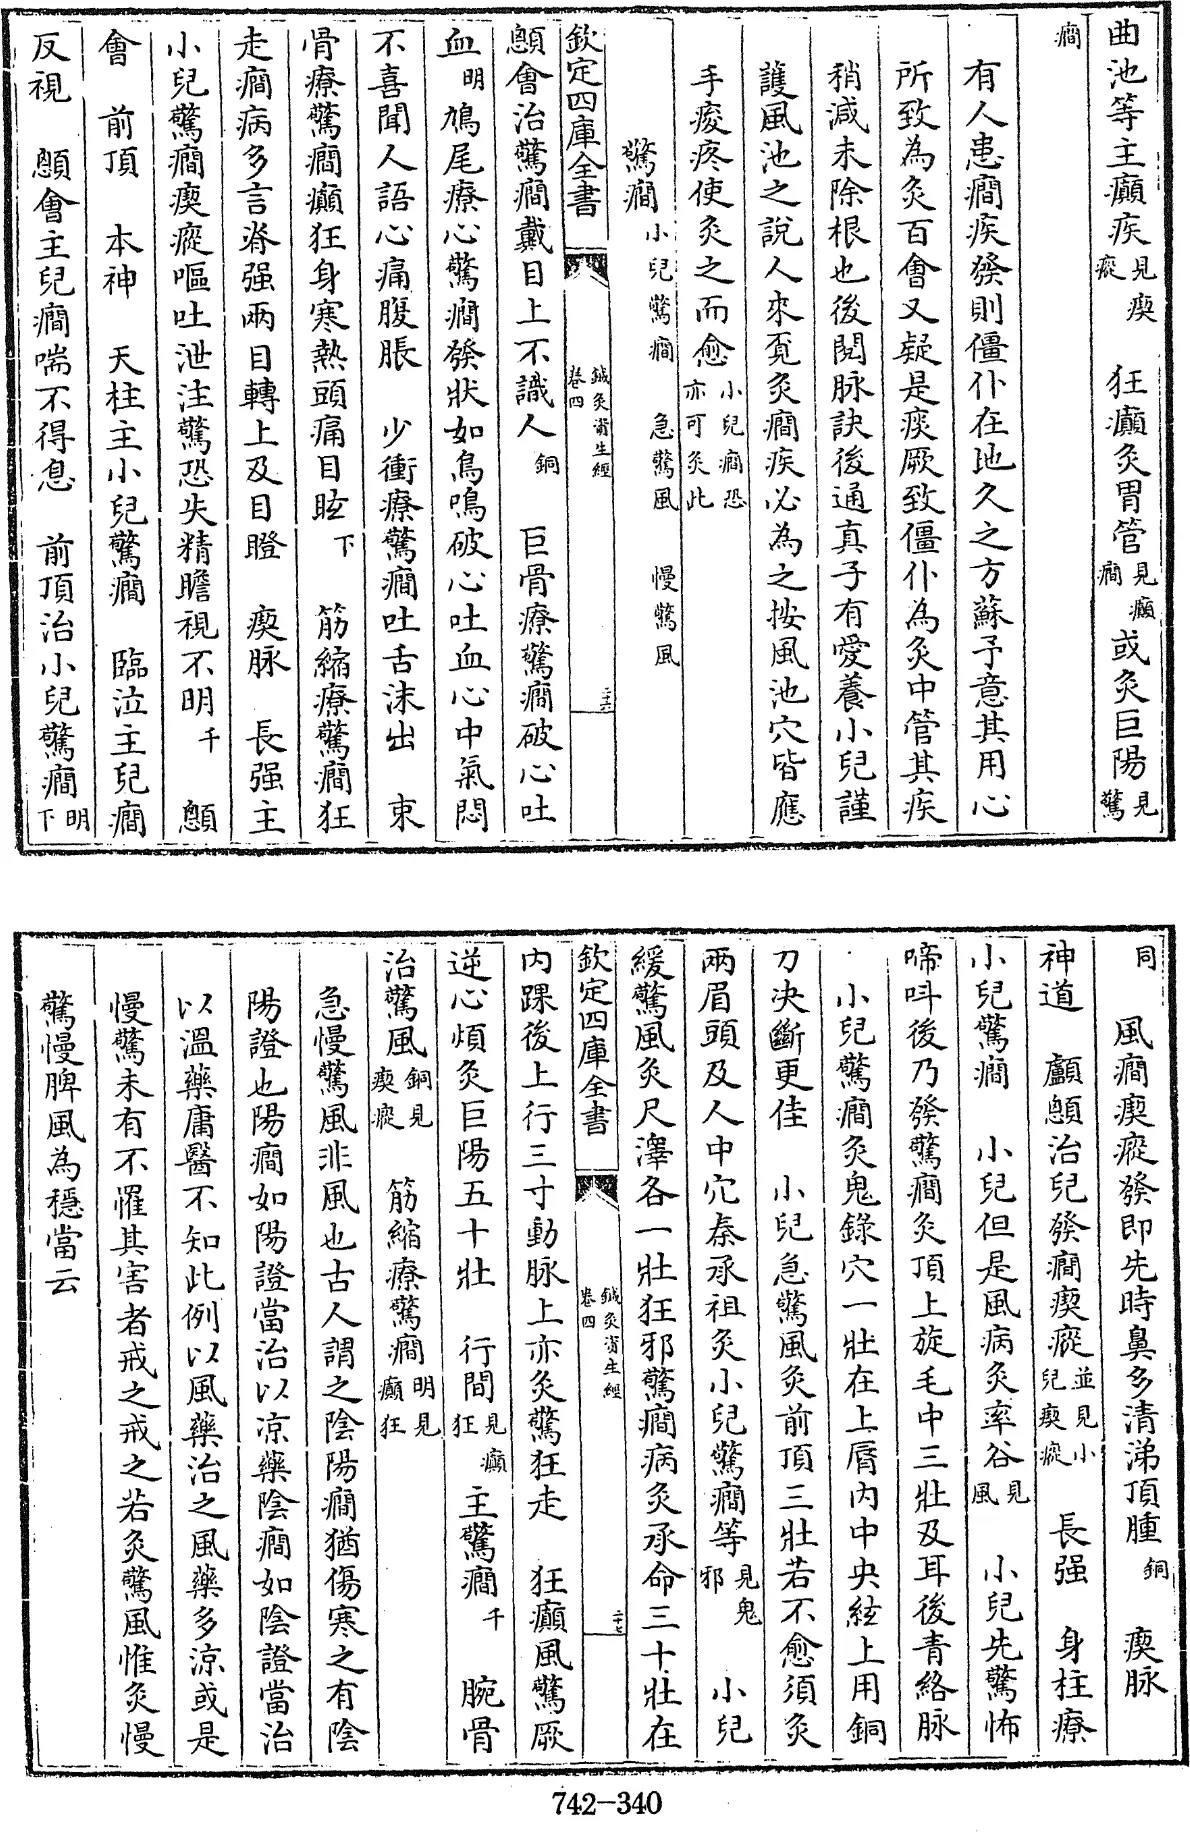 曲池等主癲疾見瘈瘲 狂癲灸胃管見癲癇或灸巨陽見驚
癇
有人患癇疾發則僵仆在地久之方蘇予意其用心
所致為灸百會又疑是痰厥致僵仆為灸中管其疾
稍減未除根也後閲脉訣後通真子有愛養小兒謹
護風池之說人來覓灸癇疾必為之按風池穴皆應
手痠疼使灸之而愈小兒癇恐亦可灸此
驚癇小兒驚癇 急驚風 慢驚風
欽定四庫全書 鍼灸資生經卷四 二十六
顖會治驚癇戴目上不識人銅 巨骨療驚癇破心吐
血明鳩尾療心驚癇發狀如鳥鳴破心吐血心中氣悶
不喜聞人語心痛腹脹 少衝療驚癇吐舌沫出 束
骨療驚癇癲狂身寒熱頭痛目眩下 筋縮療驚癇狂
走癇病多言脊强兩目轉上及目瞪 瘈脉 長强主
小兒驚癇瘈瘲嘔吐泄注驚恐失精瞻視不明千 顖
會 前頂 本神 天柱主小兒驚癇 臨泣主兒癇
反視 顖會主兒癇喘不得息 前頂治小兒驚癇明下
同 風癇瘈瘲發即先時鼻多清涕頂腫銅 瘈脉
神道 顱顖治兒發癇瘈瘲並見小兒瘈瘲 長强 身柱療
小兒驚癇 小兒但是風病灸率谷見風 小兒先驚怖
啼呌後乃發驚癇灸頂上旋毛中三壯及耳後青絡脉
小兒驚癇灸鬼錄穴一壯在上脣内中央絃上用銅
刀決斷更佳 小兒急驚風灸前頂三壯若不愈須灸
兩眉頭及人中穴秦承祖灸小兒驚癇等見鬼邪 小兒
緩驚風灸尺澤各一壯狂邪驚癇病灸承命三十壯在
欽定四庫全書 鍼灸資生經卷四 二十七
内踝後上行三寸動脉上亦灸驚狂走 狂癲風驚厥
逆心煩灸巨陽五十壯 行間見癲狂主驚癇千 腕骨
治驚風銅見瘈瘲 筋縮療驚癇明見癲狂
急慢驚風非風也古人謂之陰陽癇猶傷寒之有陰
陽證也陽癇如陽證當治以凉藥陰癇如陰證當治
以溫藥庸醫不知此例以風藥治之風藥多凉或是
慢驚未有不罹其害者戒之戒之若灸驚風惟灸慢
驚慢脾風為穏當云
742-340